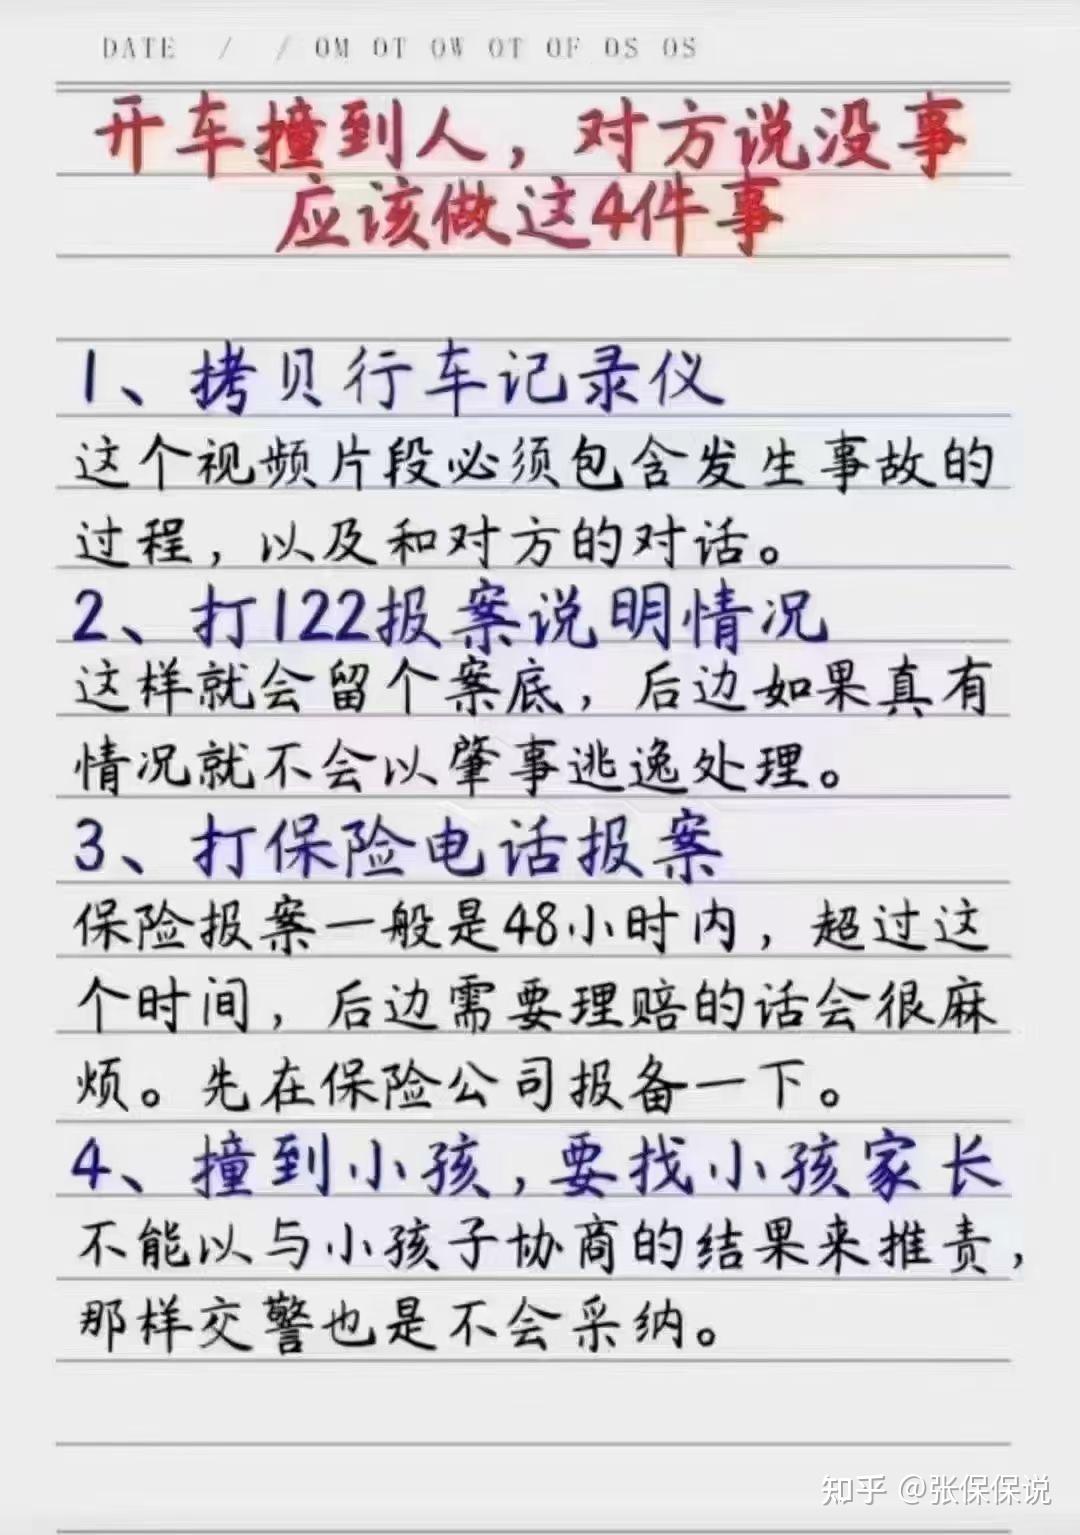 DATE / / OM OT OW OT OF OS OS
开车撞到人，对方说没事
应该做这4件事
1、拷贝行车记录仪
这个视频片段必须包含发生事故的
过程，以及和对方的对话。
2、打122报案说明情况
这样就会留个案底，后边如果真有
情况就不会以肇事逃逸处理。
3、打保险电话报案
保险报案一般是48小时内，超过这
个时间，后边需要理赔的话会很麻
烦。先在保险公司报备一下。
4、撞到小孩，要找小孩家长
不能以与小孩子协商的结果来推责，
那样交警也是不会采纳。
知乎 @张保保说